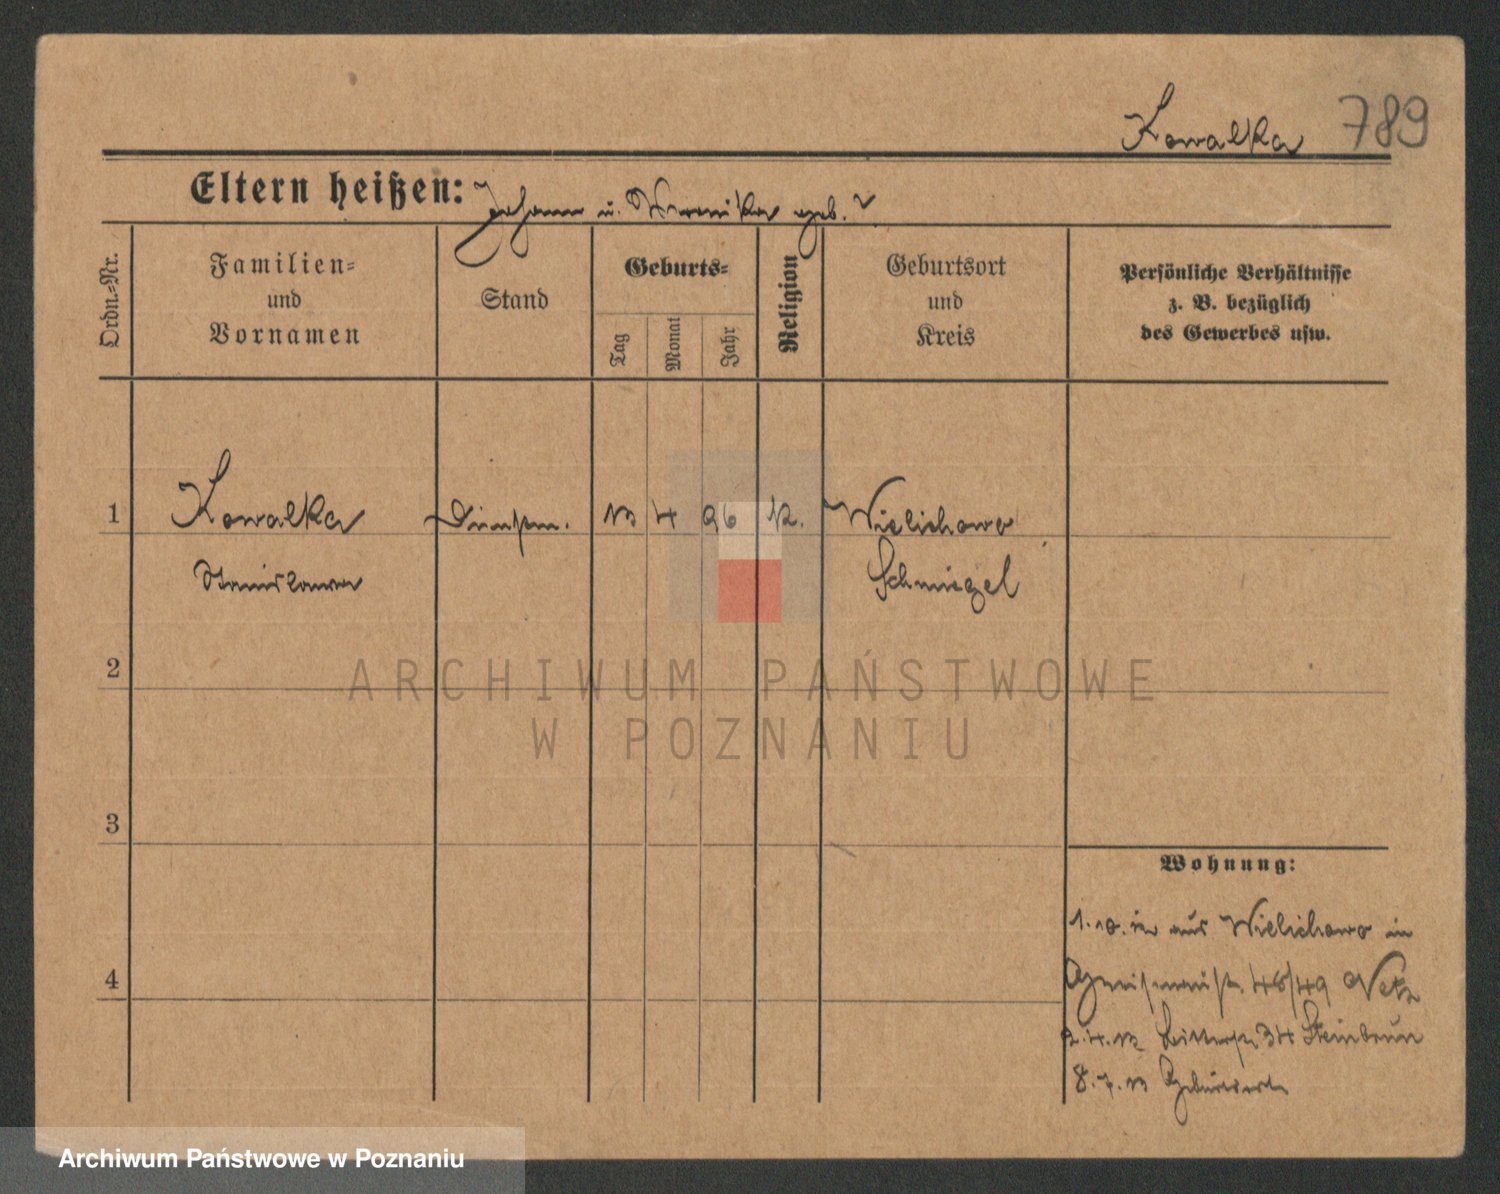 Kowalka 789
Eltern heißen: Johann u. Veronika geb. ?
Ordn.-Nr.
Familien-
und
Vornamen
Stand
Geburts-
Tag
Monat
Jahr
Religion
Geburtsort
und
Kreis
Persönliche Verhältnisse
z. B. bezüglich
des Gewerbes usw.
1 Kowalka Dienstm. 13 4 96 k. Wielichowo
Stanislawa Schmiegel
2
3
4
Wohnung:
1.10. aus Wielichowo in
46/49
2.4.13 Ritterstr 34 Steinbrun
8.7.13 Geburtsort
ARCHIWUM PAŃSTWOWE
W POZNANIU
Archiwum Państwowe w Poznaniu